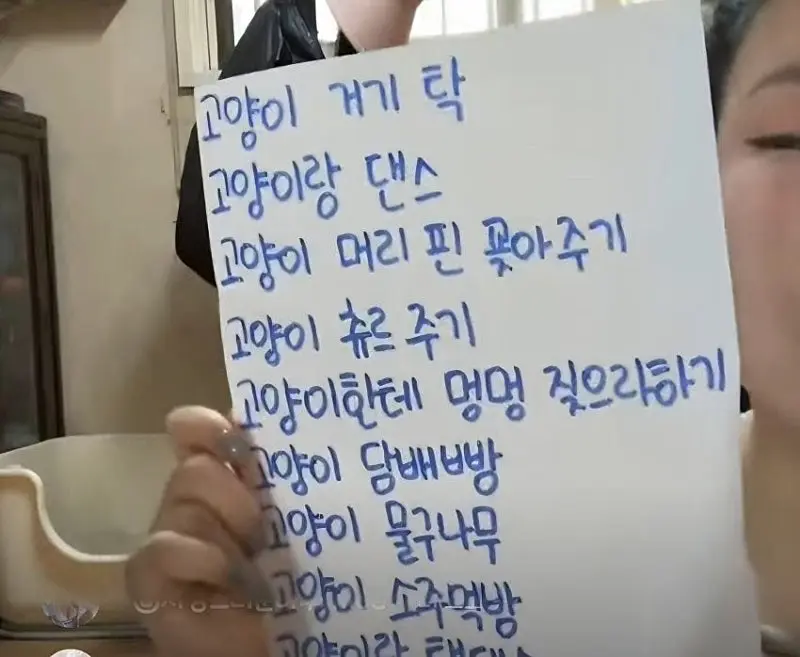 고양이 거기 탁
고양이랑 댄스
고양이 머리 핀 꽂아주기
고양이 츄르 주기
고양이한테 멍멍 짖으라하기
고양이 담배빵
고양이 물구나무
고양이 소주먹방
고양이랑